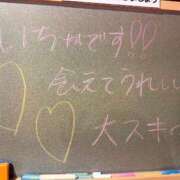 いちゃです!!
会えてうれしい
大スキ